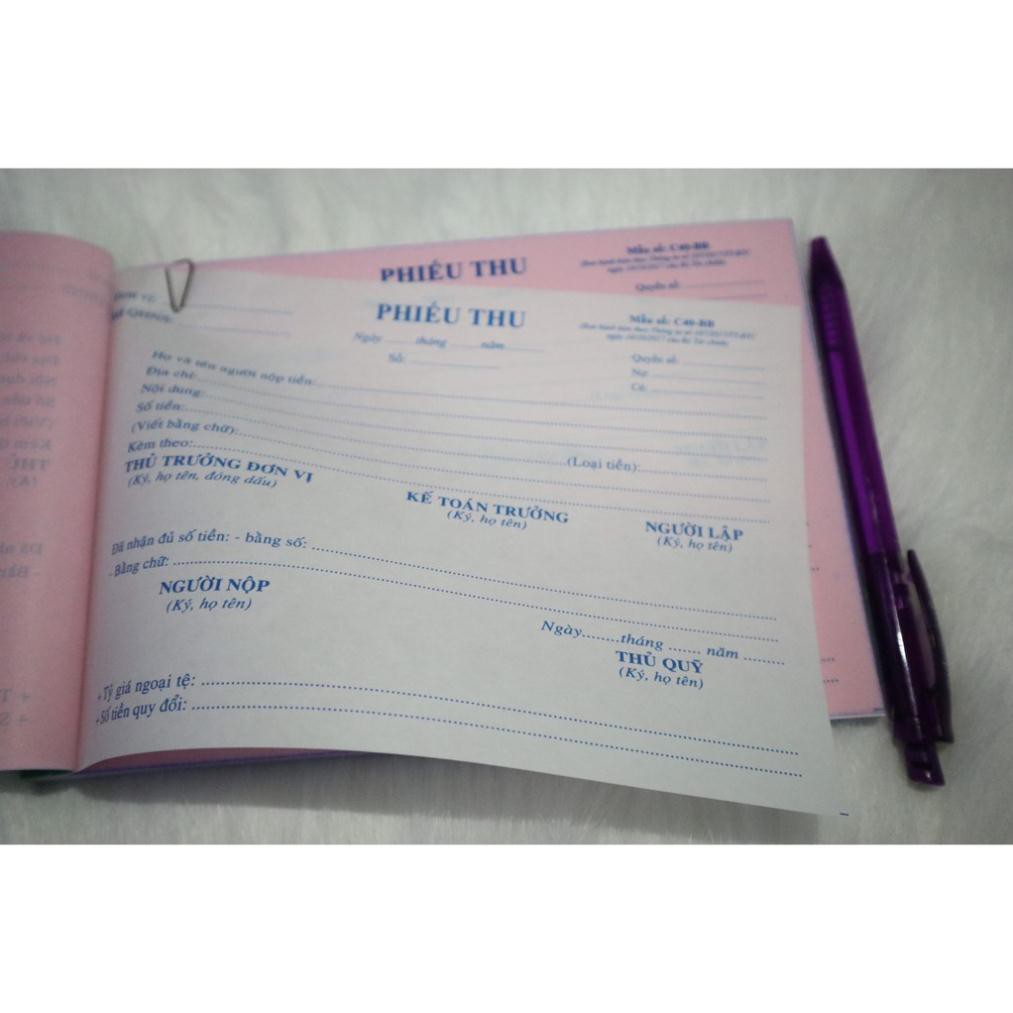 PHIẾU THU
Mẫu số: C40-BB
Quyển số:
PHIẾU THU
Mẫu số: C40-BB
Ngày ........ tháng ........ năm ........
Số:
Quyển số:
Nợ:
Có:
Họ và tên người nộp tiền:
Địa chỉ:
Nội dung:
Số tiền: (Loại tiền):
(Viết bằng chữ):
Kèm theo:
THỦ TRƯỞNG ĐƠN VỊ KẾ TOÁN TRƯỞNG NGƯỜI LẬP
(Ký, họ tên, đóng dấu) (Ký, họ tên) (Ký, họ tên)
Đã nhận đủ số tiền: - bằng số:
- Bằng chữ:
Ngày........tháng ....... năm .........
NGƯỜI NỘP THỦ QUỸ
(Ký, họ tên) (Ký, họ tên)
+ Tỷ giá ngoại tệ:
+ Số tiền quy đổi: